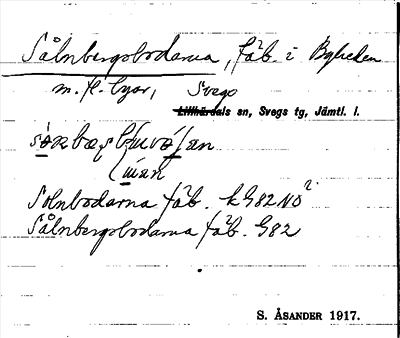 Sålnbergsbodarna, fäb. i Byheden
m. fl. byar, Svegs
Lillhärdals sn, Svegs tg, Jämtl. l.
Solnbodarna fäb. kG82NO
Sålnbergsbodarna fäb. G82
S. ÅSANDER 1917.